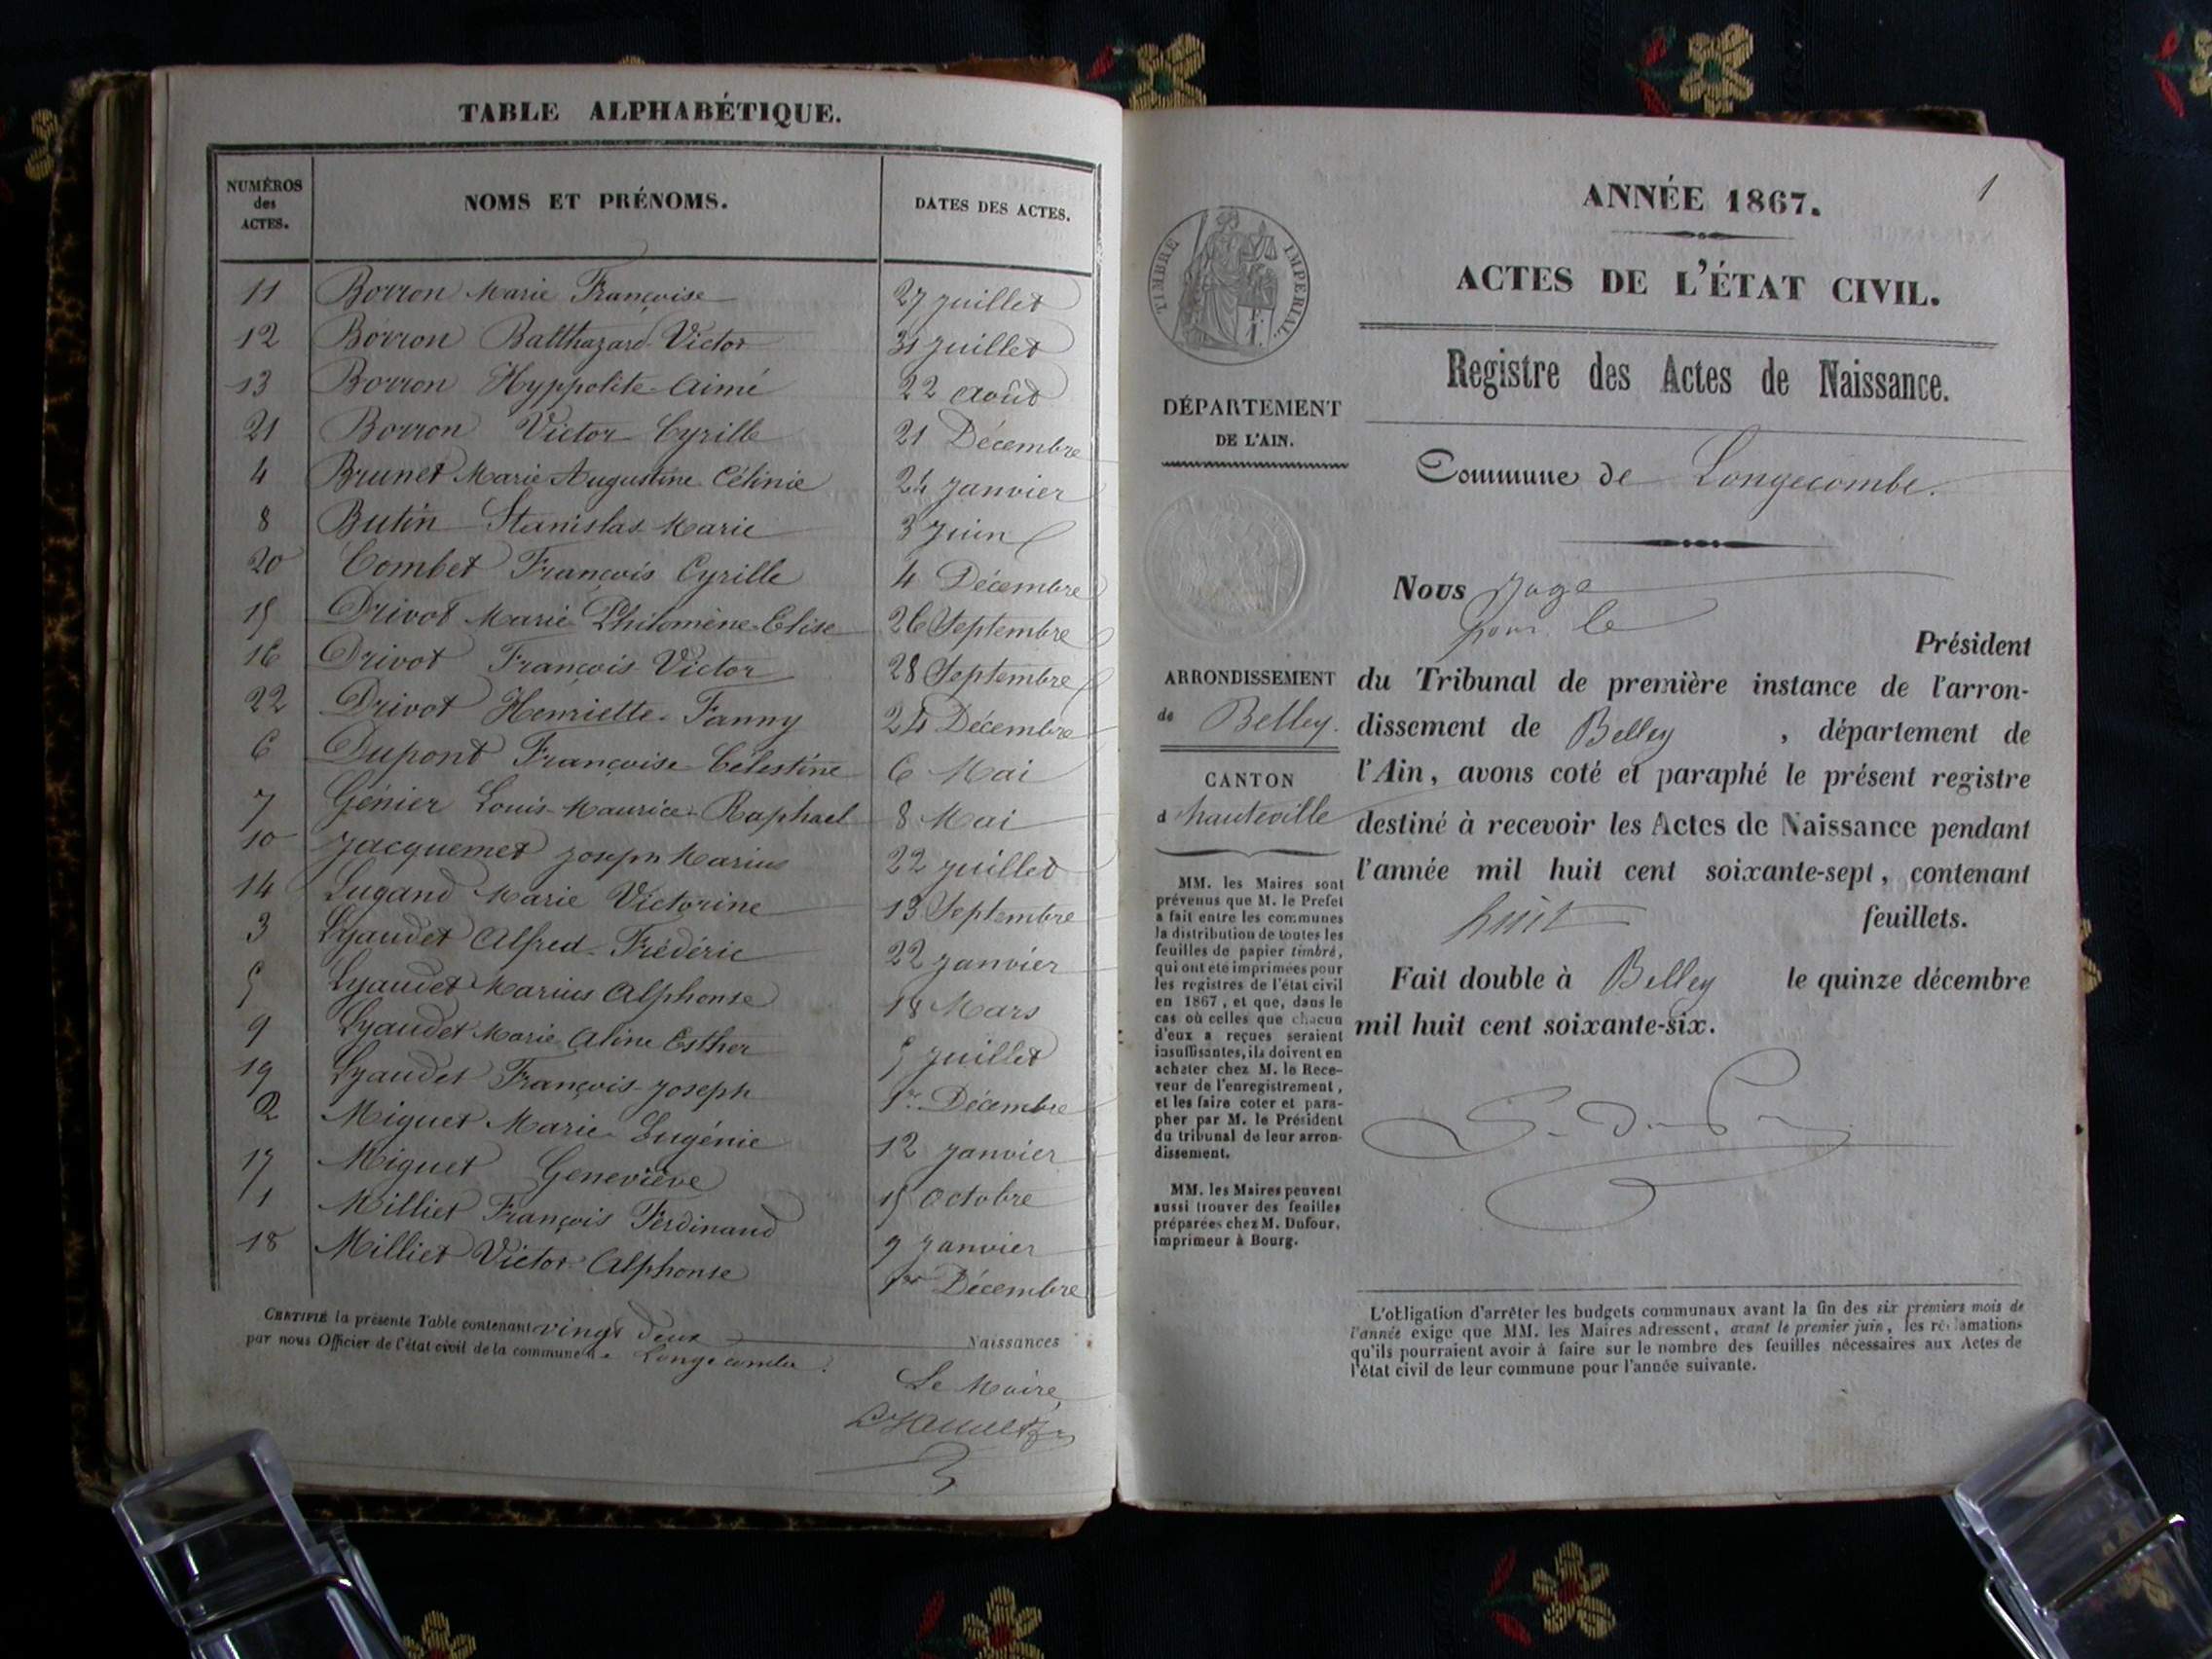 TABLE ALPHABÉTIQUE.
NUMÉROS des ACTES. NOMS ET PRÉNOMS. DATES DES ACTES.
11 Borron Marie Françoise 27 juillet
12 Borron Balthazard Victor 31 juillet
13 Borron Hyppolite Aimé 22 Août
21 Borron Victor Cyrille 21 Décembre
4 Brunet Marie Augustine Célinie 24 janvier
8 Butin Stanislas Marie 3 juin
20 Combet François Cyrille 4 Décembre
15 Drivot Marie Philomène Elise 26 Septembre
16 Drivot François Victor 28 Septembre
22 Drivot Henriette Fanny 24 Décembre
6 Dupont Françoise Célestine 6 Mai
7 Génier Louis Maurice Raphael 8 Mai
10 Jacquemet Joseph Marius 22 juillet
14 Lugand Marie Victorine 13 Septembre
3 Lyaudet Alfred Frédéric 22 janvier
5 Lyaudet Marius Alphonse 18 Mars
9 Lyaudet Marie Aline Esther 5 juillet
19 Lyaudet François Joseph 1er Décembre
2 Miguet Marie Eugénie 12 janvier
17 Miguet Geneviève 15 Octobre
1 Milliet François Ferdinand 9 janvier
18 Milliet Victor Alphonse 1er Décembre
CERTIFIÉ la présente Table contenant vingt deux Naissances
par nous Officier de l'état civil de la commune de Longecombe.
Le Maire
1
ANNÉE 1867.
ACTES DE L'ÉTAT CIVIL.
Registre des Actes de Naissance.
Commune de Longecombe.
TIMBRE IMPÉRIAL.
DÉPARTEMENT
DE L'AIN.
ARRONDISSEMENT
de Belley.
CANTON
d'hauteville
MM. les Maires sont
prévenus que M. le Préfet
a fait entre les communes
la distribution de toutes les
feuilles de papier timbré,
qui ont été imprimées pour
les registres de l'état civil
en 1867, et que, dans le
cas où celles que chacun
d'eux a reçues seraient
insuffisantes, ils doivent en
acheter chez M. le Rece-
veur de l'enregistrement,
et les faire coter et para-
pher par M. le Président
du tribunal de leur arron-
dissement.
MM. les Maires peuvent
aussi trouver des feuilles
préparées chez M. Dufour,
imprimeur à Bourg.
Nous juge
pour le
Président
du Tribunal de première instance de l'arron-
dissement de Belley, département de
l'Ain, avons coté et paraphé le présent registre
destiné à recevoir les Actes de Naissance pendant
l'année mil huit cent soixante-sept, contenant
huit feuillets.
Fait double à Belley le quinze décembre
mil huit cent soixante-six.
L'obligation d'arrêter les budgets communaux avant la fin des six premiers mois de
l'année exige que MM. les Maires adressent, avant le premier juin, les réclamations
qu'ils pourraient avoir à faire sur le nombre des feuilles nécessaires aux Actes de
l'état civil de leur commune pour l'année suivante.